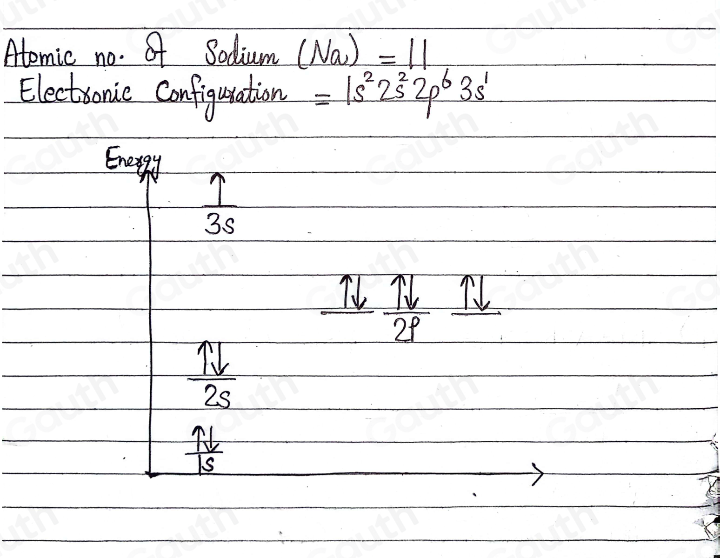 Atomic no. of Sodium (Na) = 11
Electronic Configuration = 1s² 2s² 2p⁶ 3s¹
Energy
↑
3s
↑↓ ↑↓ ↑↓
2p
↑↓
2s
↑↓
1s
Gauth